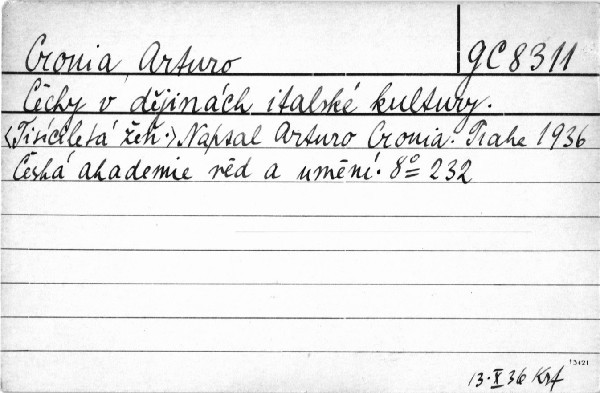 Cronia Arturo GC 8311
Čechy v dějinách italské kultury.
<Tisíciletá žeň.> Napsal Arturo Cronia. Praha 1936
Česká akademie věd a umění. 8° 232
13421
13.X 36 Krf